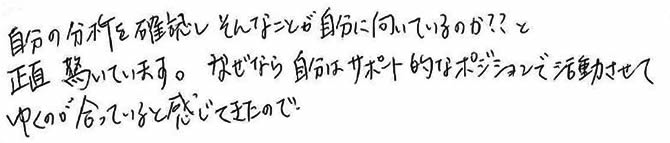 自分の分析を確認しそんなことが自分に向いているのか??と
正直 驚いています。 なぜなら 自分はサポート的なポジションで活動させて
ゆくのが合っていると感じてきたので.